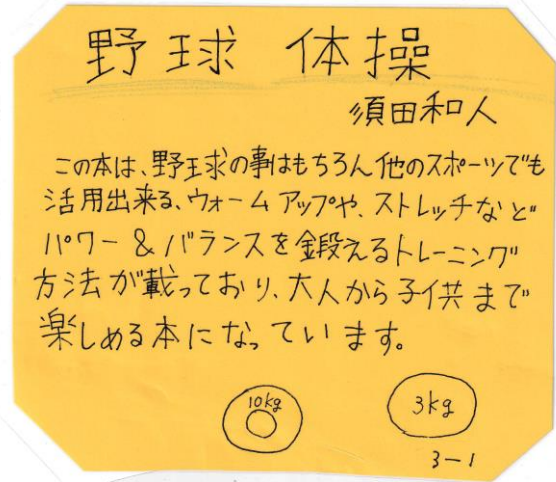 野球 体操
須田和人
この本は、野球の事はもちろん他のスポーツでも
活用出来る、ウォームアップや、ストレッチなど
パワー&バランスを鍛えるトレーニング
方法が載っており、大人から子供まで
楽しめる本になっています。
10kg
3kg
3-1